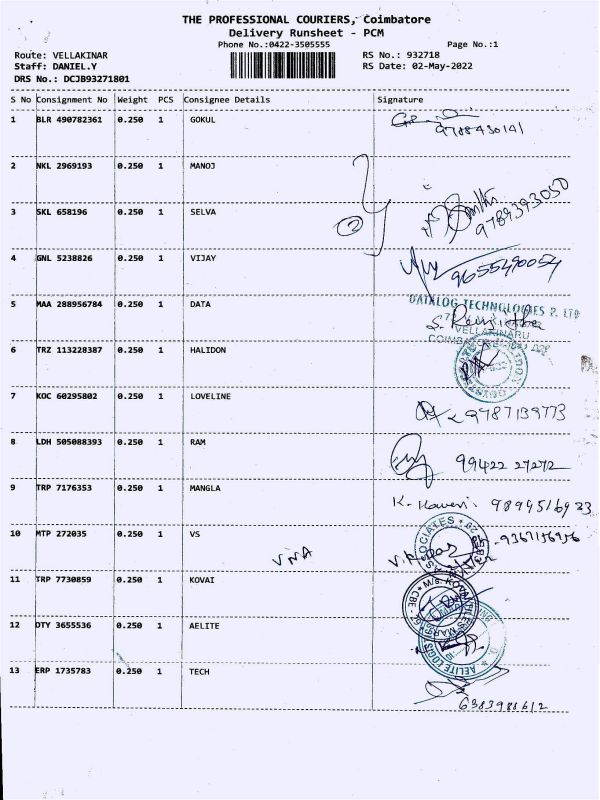 THE PROFESSIONAL COURIERS, Coimbatore
Delivery Runsheet - PCM
Phone No.:0422-3505555 Page No.:1
Route: VELLAKINAR RS No.: 932718
Staff: DANIEL.Y RS Date: 02-May-2022
DRS No.: DCJB93271801
S No Consignment No Weight PCS Consignee Details Signature
1 BLR 490782361 0.250 1 GOKUL
9788430141
2 NKL 2969193 0.250 1 MANOJ
3 SKL 658196 0.250 1 SELVA 9789393050
4 GNL 5238826 0.250 1 VIJAY 9655490054
5 MAA 288956784 0.250 1 DATA DATALOG TECHNOLOGIES P. LTD
VELLAKINARU
6 TRZ 113228387 0.250 1 HALIDON
7 KOC 60295802 0.250 1 LOVELINE 9787139773
8 LDH 505088393 0.250 1 RAM 99422 27272
9 TRP 7176353 0.250 1 MANGLA K. Kaveri.
10 MTP 272035 0.250 1 VS
VNA
11 TRP 7730859 0.250 1 KOVAI
12 OTY 3655536 0.250 1 AELITE AELITE LOGIS
13 ERP 1735783 0.250 1 TECH
6383988612